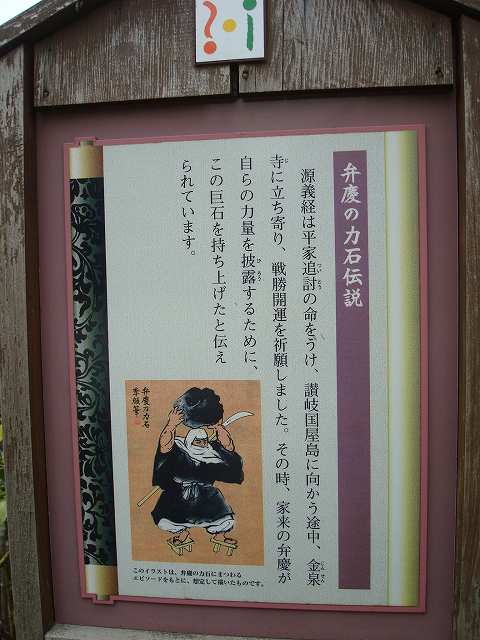 弁慶の力石伝説
源義経は平家追討の命をうけ、讃岐国屋島に向かう途中、金泉
寺に立ち寄り、戦勝開運を祈願しました。その時、家来の弁慶が
自らの力量を披露するために、
この巨石を持ち上げたと伝え
られています。
弁慶の力石
このイラストは、弁慶の力石にまつわる
エピソードをもとに、想定して描いたものです。